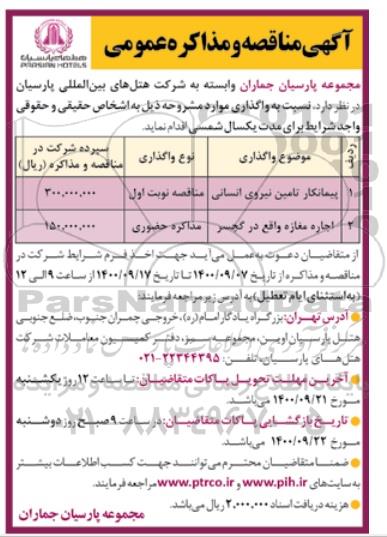 آگهی مناقصه و مذاکره عمومی
هتلهای پارسیان
PARSIAN HOTELS
مجموعه پارسیان جماران وابسته به شرکت هتل‌های بین‌المللی پارسیان
در نظر دارد، نسبت به واگذاری موارد مشروحه ذیل به اشخاص حقیقی و حقوقی
واجد شرایط برای مدت یکسال شمسی اقدام نماید.
ردیف موضوع واگذاری نوع واگذاری سپرده شرکت در مناقصه و مذاکره (ریال)
۱ پیمانکار تامین نیروی انسانی مناقصه نوبت اول ۳۰۰.۰۰۰.۰۰۰
۲ اجاره مغازه واقع در گچسر مذاکره حضوری ۱۵۰.۰۰۰.۰۰۰
از متقاضیان دعوت به عمل می آید جهت اخذ فرم شرایط شرکت در
مناقصه و مذاکره از تاریخ ۱۴۰۰/۰۹/۰۷ تا تاریخ ۱۴۰۰/۰۹/۱۷ از ساعت ۹ الی ۱۲
(به استثنای ایام تعطیل) به آدرس زیر مراجعه فرمایند:
آدرس تهران: بزرگراه یادگار امام (ره)، خروجی چمران جنوب، ضلع جنوبی
هتل پارسیان اوین، مجموعه سبز، دفتر کمیسیون معاملات شرکت
هتل‌های پارسیان، تلفن: ۲۲۳۴۴۳۹۵-۰۲۱
آخرین مهلت تحویل پاکات متقاضیان: تا ساعت ۱۲ روز یکشنبه
مورخ ۱۴۰۰/۰۹/۲۱ می‌باشد.
تاریخ بازگشایی پاکات متقاضیان: در ساعت ۹ صبح روز دوشنبه
مورخ ۱۴۰۰/۰۹/۲۲ می‌باشد.
ضمنا متقاضیان محترم می‌توانند جهت کسب اطلاعات بیشتر
به سایت‌های www.pih.ir و www.ptrco.ir مراجعه فرمایند.
هزینه دریافت اسناد ۲.۰۰۰.۰۰۰ ریال می‌باشد.
مجموعه پارسیان جماران